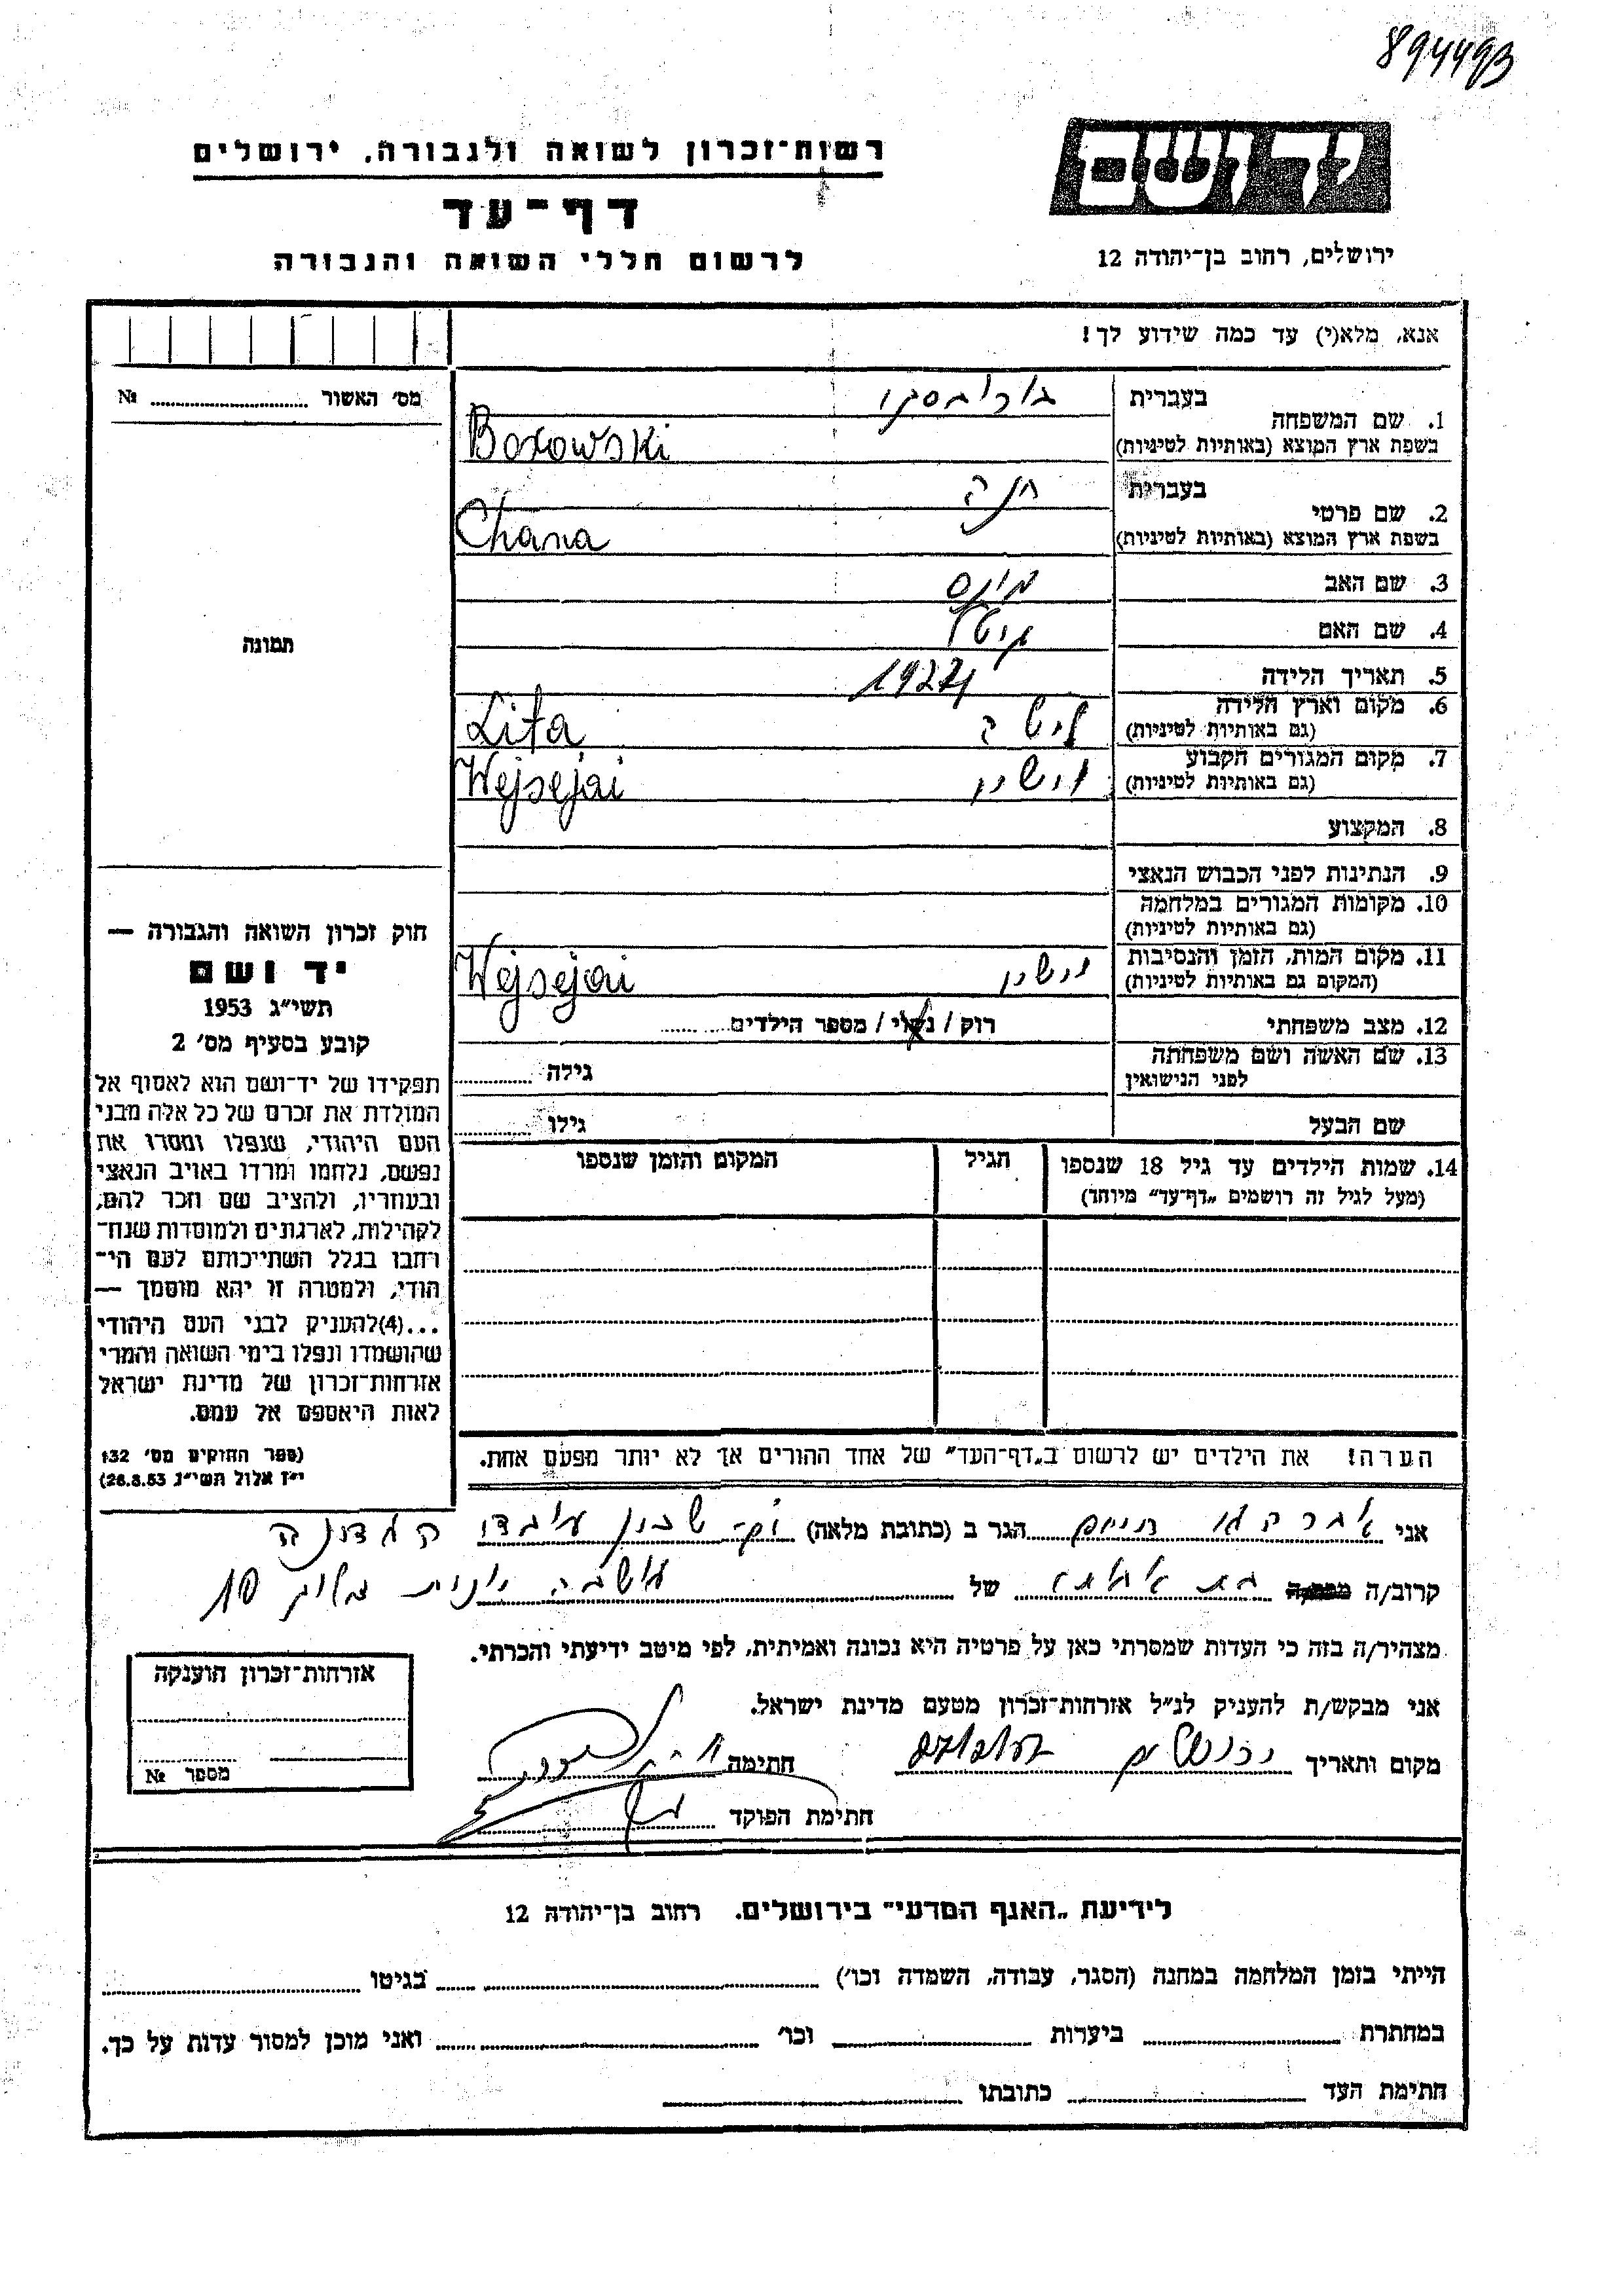 894493
רשות־זכרון לשואה ולגבורה, ירושלים
דף־עד
לרשום חללי השואה והגבורה
יד ושם
ירושלים, רחוב בן־יהודה 12
אנא, מלא(י) עד כמה שידוע לך!
מס׳ האשור №
תמונה
1. שם המשפחה
בעברית בורובסקי
בשפת ארץ המוצא (באותיות לטיניות) Borowski
2. שם פרטי
בעברית חנה
בשפת ארץ המוצא (באותיות לטיניות) Chana
3. שם האב
4. שם האם
5. תאריך הלידה
6. מקום וארץ הלידה ליטה
(גם באותיות לטיניות) Lita
7. מקום המגורים הקבוע
(גם באותיות לטיניות) Wejsejai
8. המקצוע
9. הנתינות לפני הכבוש הנאצי
10. מקומות המגורים במלחמה
(גם באותיות לטיניות)
11. מקום המות, הזמן והנסיבות
(המקום גם באותיות לטיניות) Wejsejai
12. מצב משפחתי רוק / נשוי / מספר הילדים
13. שם האשה ושם משפחתה גילה
לפני הנישואין
שם הבעל גילו
14. שמות הילדים עד גיל 18 שנספו הגיל המקום והזמן שנספו
(מעל לגיל זה רושמים „דף־עד״ מיוחד)
הערה! את הילדים יש לרשום ב„דף־העד״ של אחד ההורים אך לא יותר מפעם אחת.
חוק זכרון השואה והגבורה —
יד ושם
תשי״ג 1953
קובע בסעיף מס׳ 2
תפקידו של יד־ושם הוא לאסוף אל
המולדת את זכרם של כל אלה מבני
העם היהודי, שנפלו ומסרו את
נפשם, נלחמו ומרדו באויב הנאצי
ובעוזריו, ולהציב שם וזכר להם,
לקהילות, לארגונים ולמוסדות שנח־
רחבו בגלל השתייכותם לעם הי־
הודי, ולמטרה זו יהא מוסמך —
...(4)להעניק לבני העם היהודי
שהושמדו ונפלו בימי השואה והמרי
אזרחות־זכרון של מדינת ישראל
לאות היאספם אל עמם.
(ספר החוקים מס׳ 132
י״ז אלול תשי״ג 26.8.53)
אני חיים הגר ב (כתובת מלאה)
קרוב/ה של
מצהיר/ה בזה כי העדות שמסרתי כאן על פרטיה היא נכונה ואמיתית, לפי מיטב ידיעתי והכרתי.
אני מבקש/ת להעניק לנ״ל אזרחות־זכרון מטעם מדינת ישראל.
מקום ותאריך ירושלים חתימה
חתימת הפוקד
אזרחות־זכרון הוענקה
מספר №
לידיעת „האגף המדעי״ בירושלים, רחוב בן־יהודה 12
הייתי בזמן המלחמה במחנה (הסגר, עבודה, השמדה וכו׳) בגיטו
במחתרת ביערות וכו׳ ואני מוכן למסור עדות על כך.
חתימת העד כתובתו